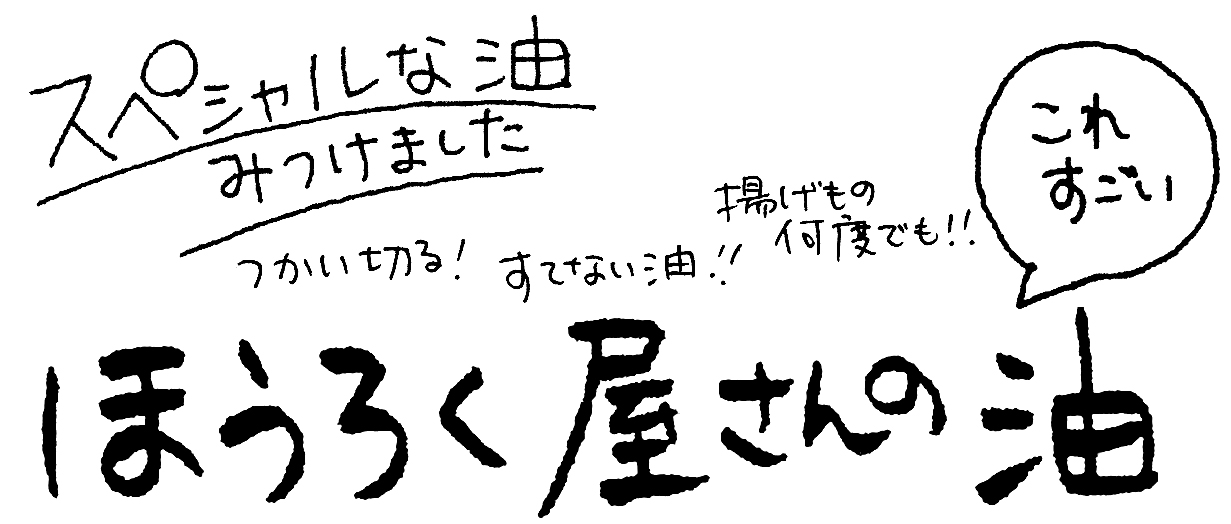 スペシャルな油
みつけました
つかい切る!
すてない油!!
揚げもの
何度でも!!
これ
すごい
ほうろく屋さんの油